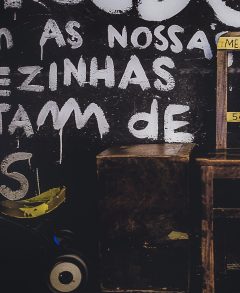 M AS NOSSAS
EZINHAS
TAM dE
S
ME